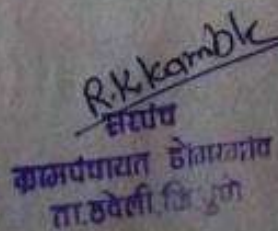 R.K kamble
सरपंच
ग्रामपंचायत डोंगरगांव
ता.हवेली, जि पुणे